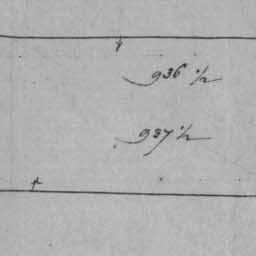 936 1/2
937 1/2